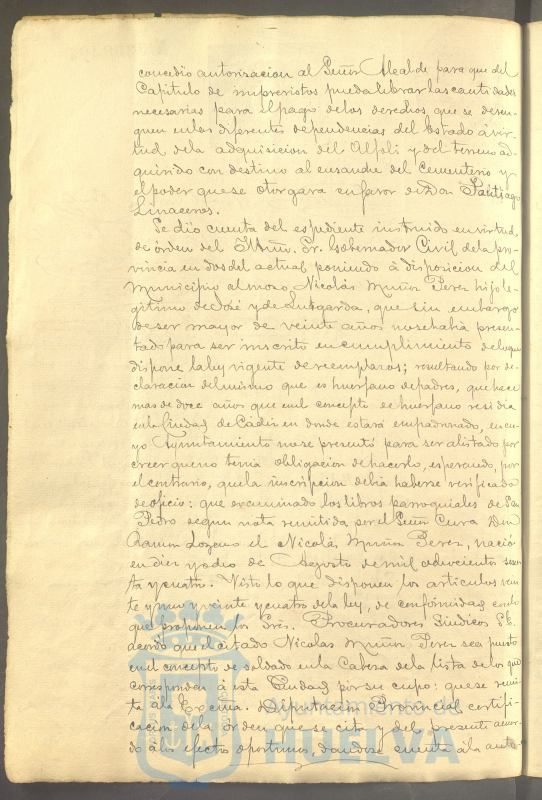 concedió autorizacion al Señor Alcalde para que del
Capitulo de imprevistos pueda librar las cantidades
necesarias para el pago de los derechos que se deven-
guen en las diferentes dependencias del Estado á vir-
tud de la adquisicion del Alfoli y del terreno ad-
quirido con destino al ensanche del Cementerio y
el poder que se otorgara en favor de Don Santiago
Linaceros.
Se dió cuenta del espediente instruido en virtud
de órden del Sr. Gobernador Civil de la pro-
vincia en dos del actual poniendo á disposicion del
Municipio al mozo Nicolás Muñoz Perez hijo le-
gitimo de José y de Lutgarda, que sin embargo
de ser mayor de veinte años no se habia presen-
tado para ser inscrito en cumplimiento de lo que
dispone la ley vigente de reemplazos; resultando por de-
claracion del mismo que es huerfano de padres, que hace
mas de doce años que en el concepto de huerfano residia
en la Ciudad de Cádiz en donde estará empadronado, en cu-
yo Ayuntamiento no se presentó para ser alistado por
creer que no tenia obligacion de hacerlo, esperando, por
el contrario, que la inscripcion debia haberse verificado
de oficio: que examinado los libros parroquiales de San
Pedro segun nota remitida por el Señor Cura Don
Ramon Lozano el Nicolás Muñoz Perez, nació
en diez y ocho de Agosto de mil ochocientos sesen-
ta y cuatro. Visto lo que disponen los articulos vein-
te y uno y veinte y cuatro de la ley, de conformidad con lo
que proponen los Sres. Procuradores Sindicos
acordó que el citado Nicolas Muñoz Perez sea puesto
en el concepto de soldado en la Cabeza de la lista de los que
corresponden á esta Ciudad por su cupo: que se remi-
ta á la Excma. Diputacion Provincial certifi-
cacion de la órden que se cita y del presente acuer-
do á los efectos oportunos, dandose cuenta á la auto-
Ayuntamiento de
HUELVA